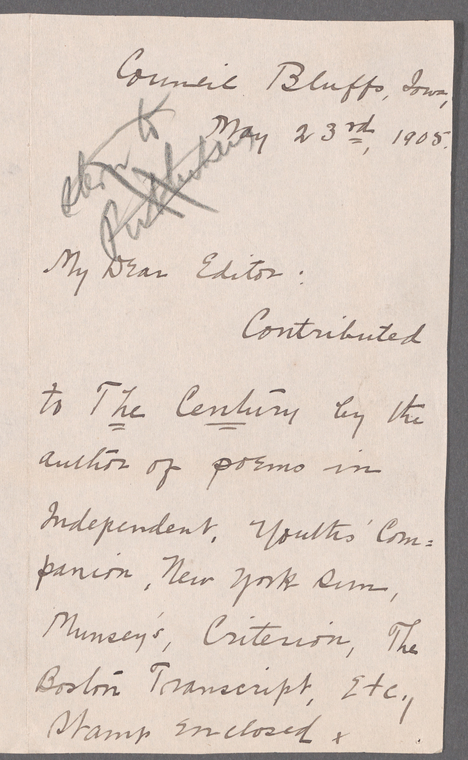 Council Bluffs, Iowa,
May 23rd, 1905.
to
My Dear Editor:
Contributed
to The Century by the
author of poems in
Independent, Youths' Com=
panion, New York Sun,
Munsey's, Criterion, The
Boston Transcript, Etc.,
Stamp enclosed x